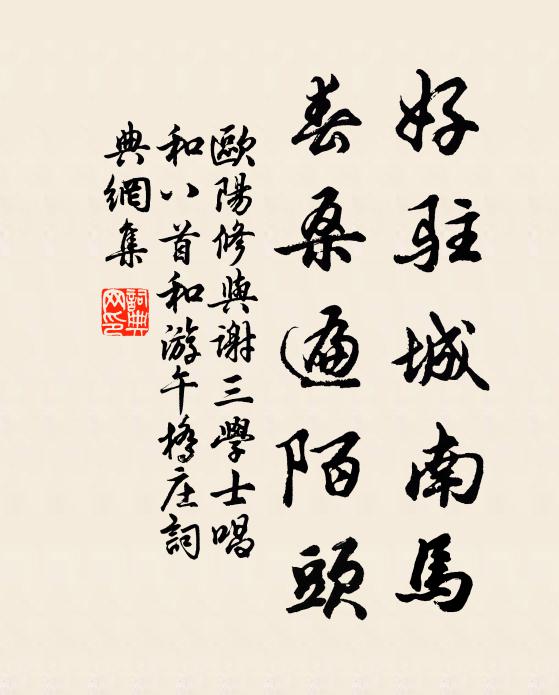 好駐城南馬
春桑遍陌頭
歐陽修與謝三學士唱
和八首和游午橋庄詞
典網集
詞典
网印